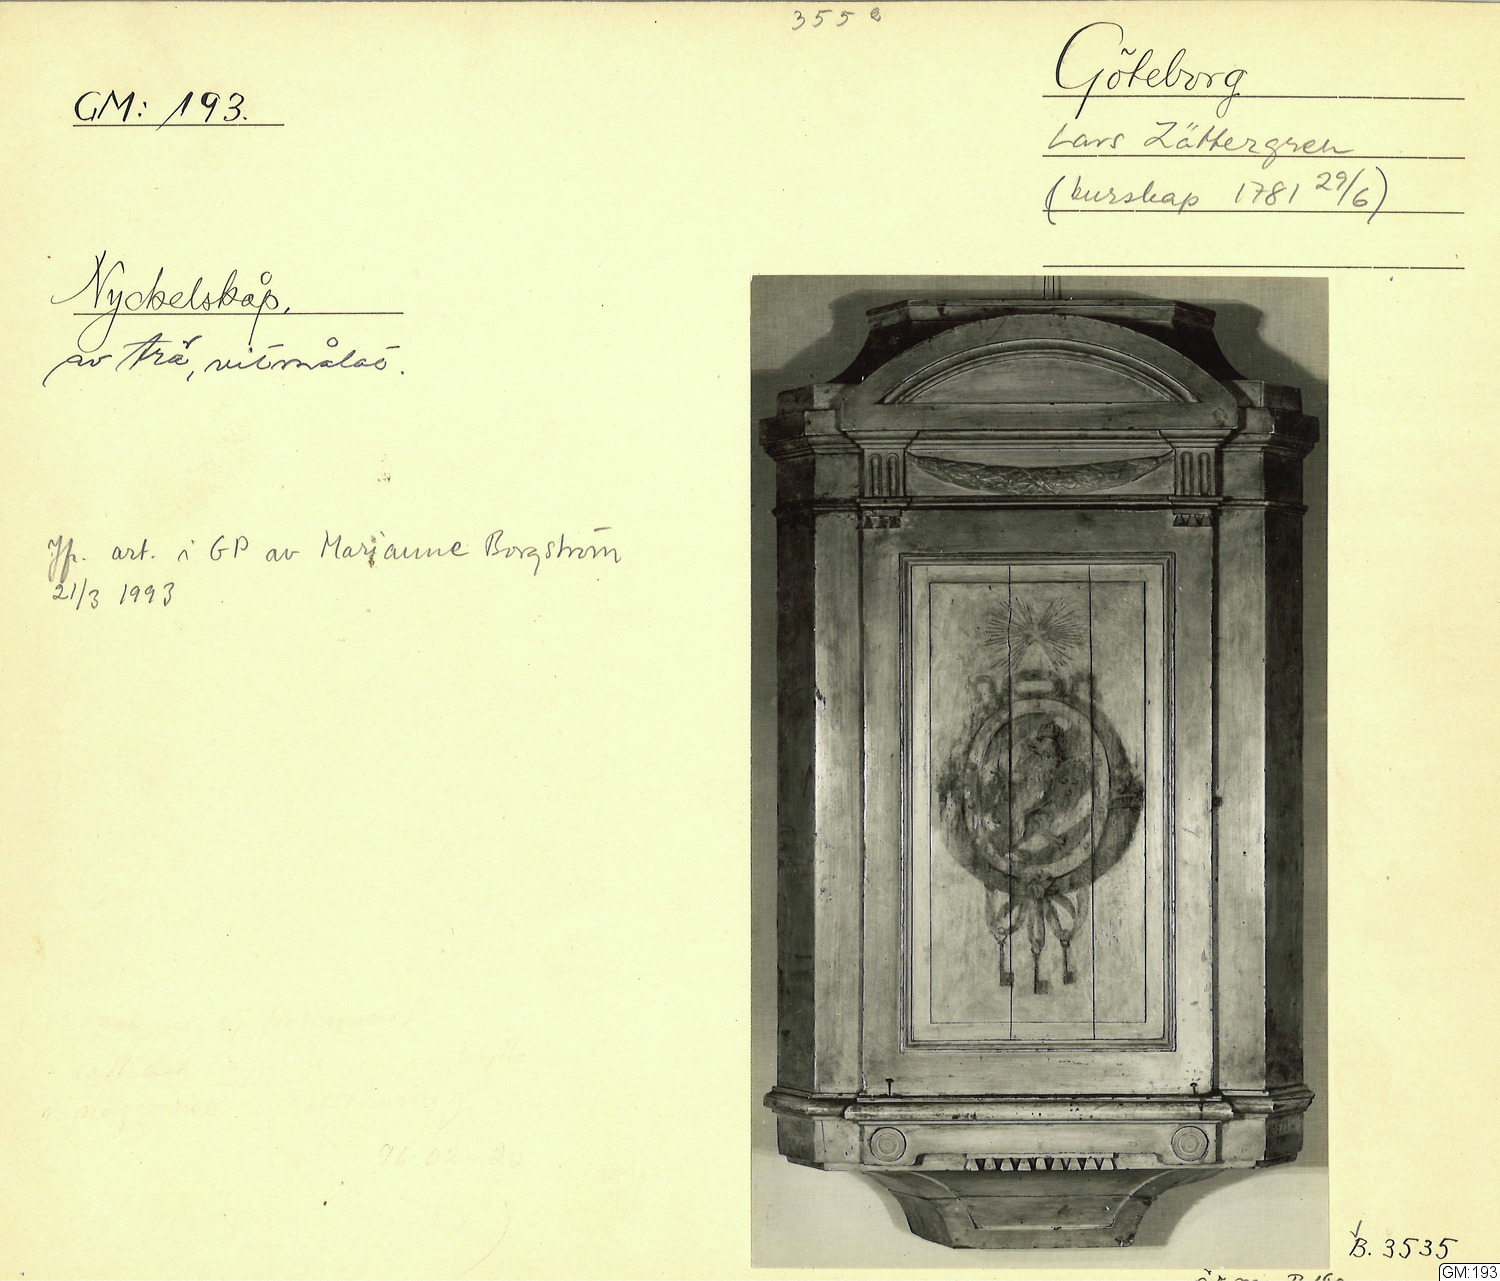 355 e
GM: 193.
Göteborg
Lars Zättergren
(burskap 1781 29/6)
Nyckelskåp.
av trä, vitmålat.
Jfr. art. i GP av Marianne Borgström
21/3 1993
96-02-20
B. 3535
GM:193